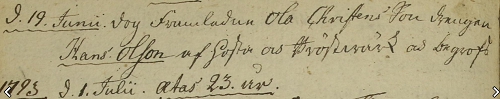 d. 19. Junii. dog Framledne Ola Christens Son drengen
Hans Olson af Hosta as Bröstwärk as begrofs
1793 d. 1. Julii. ætas 23. år.